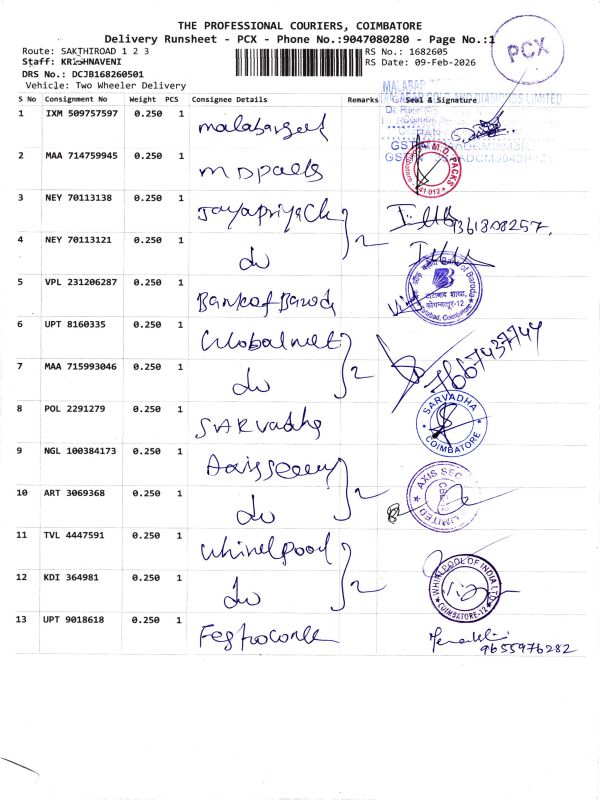 THE PROFESSIONAL COURIERS, COIMBATORE
Delivery Runsheet - PCX - Phone No.:9047080280 - Page No.:1
PCX
Route: SAKTHIROAD 1 2 3
RS No.: 1682605
Staff: KRISHNAVENI
RS Date: 09-Feb-2026
DRS No.: DCJB168260501
Vehicle: Two Wheeler Delivery
S No Consignment No Weight PCS Consignee Details Remarks Seal & Signature
1 IXM 509757597 0.250 1 malabargold
2 MAA 714759945 0.250 1 MD packs M.D. PACKS
3 NEY 70113138 0.250 1 Jayapriyack 2
4 NEY 70113121 0.250 1 do
5 VPL 231206287 0.250 1 Bank of Baroda Bank of Baroda
कोयम्पत्तूर-12
6 UPT 8160335 0.250 1 Globalnet 2
7 MAA 715993046 0.250 1 do 7667437744
8 POL 2291279 0.250 1 SARvadha SARVADHA COIMBATORE
9 NGL 100384173 0.250 1 AXIS SEC LIMITED
10 ART 3069368 0.250 1 do 2
11 TVL 4447591 0.250 1 Whirlpool 2
12 KDI 364981 0.250 1 do WHIRLPOOL OF INDIA LTD. COIMBATORE-12
13 UPT 9018618 0.250 1 9655976282